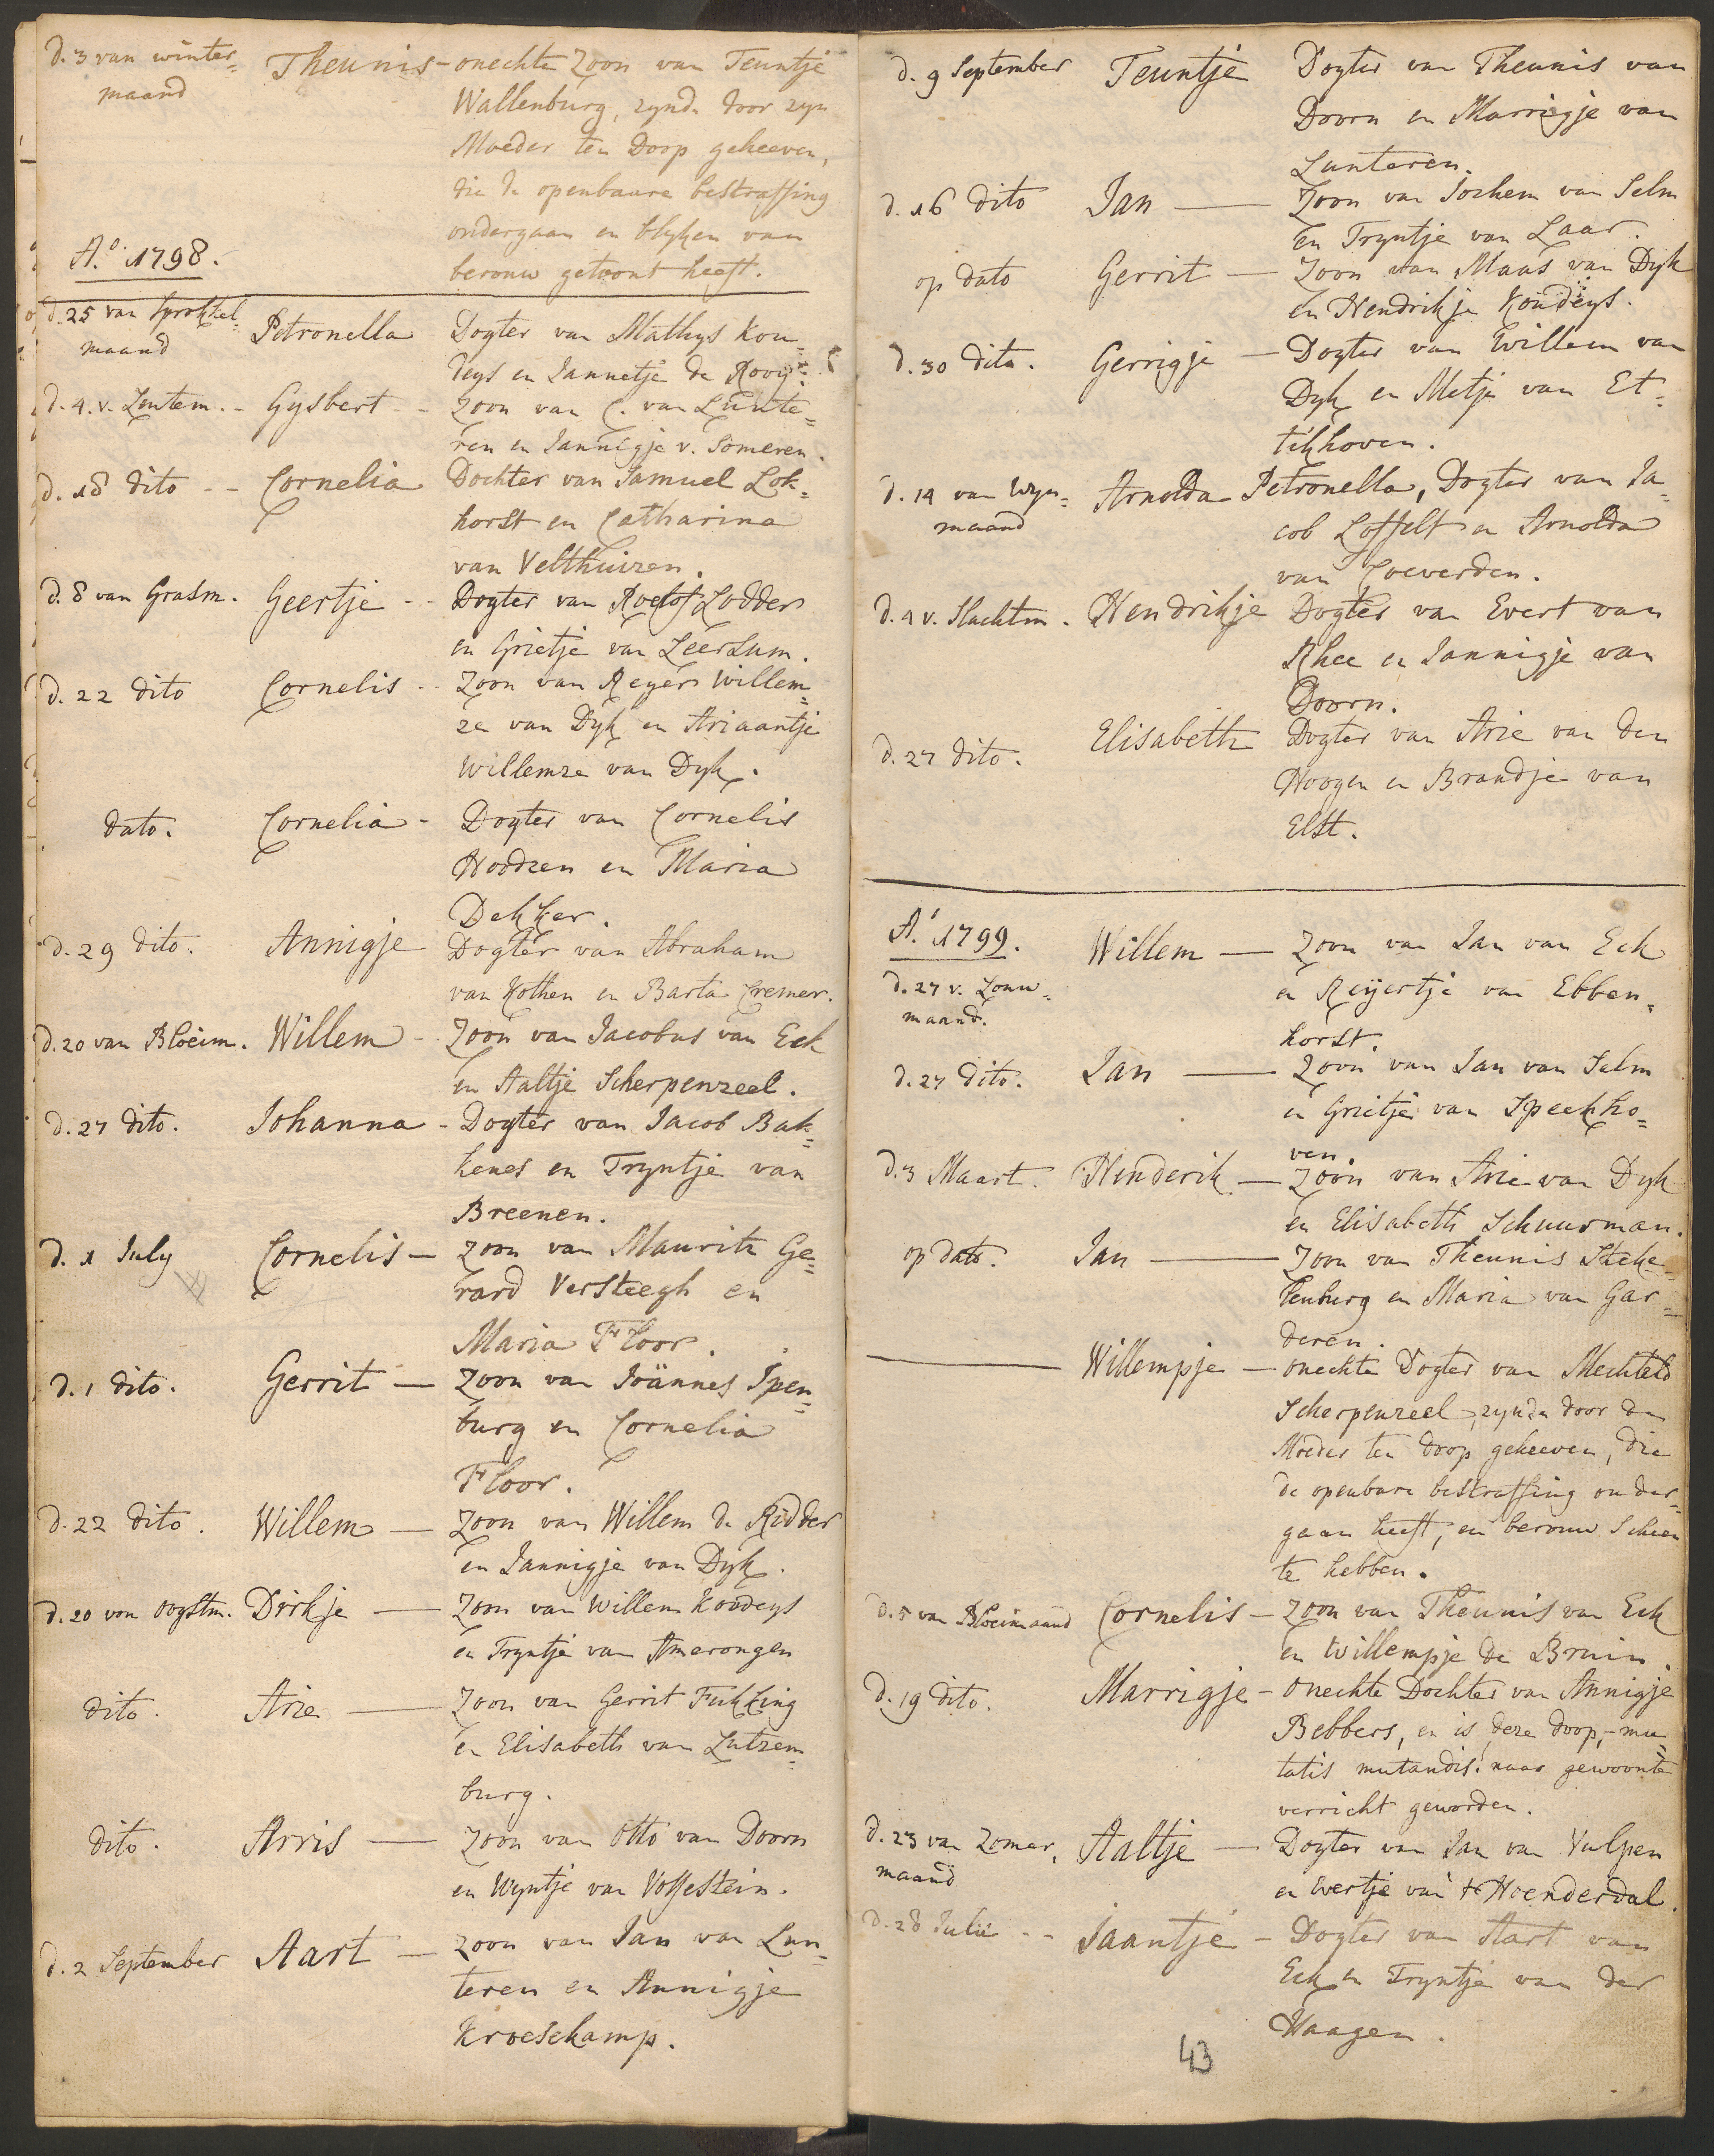 d. 3 van winter= Theunis - onechte Zoon van Teuntje
maand Wallenburg, zynde door zyn
Moeder ten Doop geheeven,
die de openbaare bestraffing
ondergaan en blyken van
A.o 1798. berouw getoont heeft.
d. 25 van Sprokkel= Petronella Dogter van Mathys Kou=
maand deys en Jannetje de Rooy.
d. 4. v. Lentem. - Gysbert - Zoon van C. van Lunte=
ren en Jannigje v. Someren.
d. 18 dito - - Cornelia Dochter van Samuel Lok=
horst en Catharina
van Velthuizen.
d. 8 van Grasm. Geertje - - Dogter van Roelof Lodder
en Grietje van Leersum.
d. 22 dito Cornelis - - Zoon van Reyer Willem=
ze van Dyk en Ariaantje
Willemze van Dyk.
dato. Cornelia - Dogter van Cornelis
Hoodzen en Maria
Dekker.
d. 29 dito. Annigje Dogter van Abraham
van Kothen en Barta Cremer.
d. 20 van Bloeim. Willem - Zoon van Jacobus van Eck
en Aaltje Scherpenzeel.
d. 27 dito. Johanna - Dogter van Jacob Bak=
kenes en Tryntje van
Breenen.
d. 1 July Cornelis - zoon van Maurits Ge=
rard Versteegh en
Maria Floor.
d. 1 dito. Gerrit - Zoon van Joännes Ipen=
burg en Cornelia
Floor.
d. 22 dito. Willem - Zoon van Willem de Ridder
en Jannigje van Dyk.
d. 20 van oogstm. Dirkje - Zoon van Willem Koudeys
en Tryntje van Amerongen
dito. Arie - Zoon van Gerrit Fukking
en Elisabeth van Lutzem=
burg.
dito. Arris - Zoon van Otto van Doorn
en Wyntje van Vossestein.
d. 2 September Aart - Zoon van Jan van Lun=
teren en Annigje
Kroeskamp.
d. 9 September Teuntje Dogter van Theunis van
Doorn en Marrigje van
Lunteren.
d. 16 dito Jan - Zoon van Jochem van Selm
en Tryntje van Laar.
op dato Gerrit - Zoon van Maas van Dyk
en Hendrikje Koudeys.
d. 30 dito. Gerrigje - Dogter van Willem van
Dyk en Metje van Et=
tikhoven.
d. 14 van Wyn= Arnolda Petronella, Dogter van Ja=
maand cob Loffelt en Arnolda
van Coeverden.
d. 4 v. Slachtm. Hendrikje Dogter van Evert van
Rhee en Jannigje van
Doorn.
d. 27 dito. Elisabeth Dogter van Arie van den
Hoogen en Brandje van
Elst.
A.o 1799. Willem - Zoon van Jan van Eck
d. 27 v. Louw= en Reijertje van Ebben=
maand. horst.
d. 27 dito. Jan - Zoon van Jan van Selm
en Grietje van Speckho=
ven.
d. 3 Maart. Henderik - Zoon van Arie van Dyk
en Elisabeth Schuurman.
op dato. Jan - Zoon van Theunis Steke=
lenburg en Maria van Gar=
deren.
Willempje - onechte Dogter van Mechteld
Scherpenzeel, zynde door de
Moeder ten doop geheeven, die
de openbare bestraffing onder=
gaan heeft, en berouw scheen
te hebben.
d. 5 van Bloeimaand Cornelis - Zoon van Theunis van Eck
en Willempje de Bruin.
d. 19 dito. Marrigje - Onechte Dochter van Annigje
Bebbers, en is deze doop, - mu=
tatis mutandis: naar gewoonte
verricht geworden.
d. 23 van Zomer, Aaltje - Dogter van Jan van Vulpen
maand en Evertje van 't Hoenderdal.
d. 28 Julii - - Jaantje - Dogter van Aart van
Eck en Tryntje van der
Haagen.
43